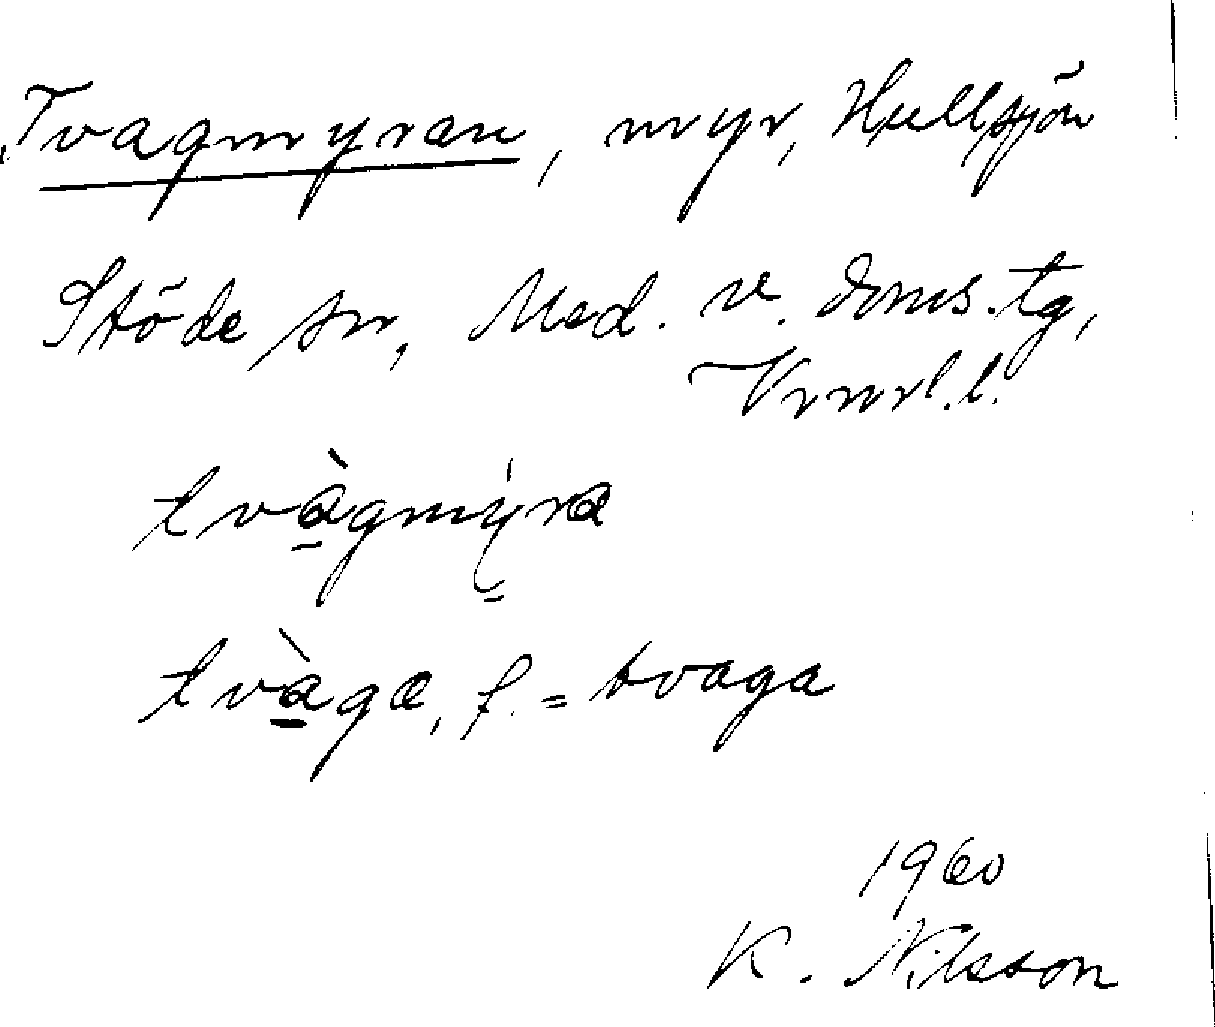 Tvagmyran, myr, Hullsjön
Stöde sn, Med. v. doms.tg,
Vrnrl.l.
tvàgmýra
tvàga, f. = tvaga
1960
K. Nilsson